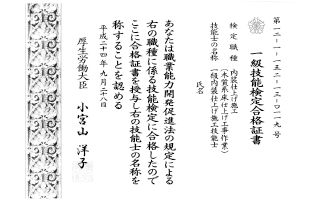 第一二-一-一五二-一三-〇一一九号
一級技能検定合格証書
検定職種 内装仕上げ施工
(木質系床仕上げ工事作業)
技能士の名称 一級内装仕上げ施工技能士
氏名
あなたは職業能力開発促進法の規定による
右の職種に係る技能検定に合格したので
ここに合格証書を授与し右の技能士の名称を
称することを認める
平成二十四年九月二十八日
厚生労働大臣 小宮山洋子